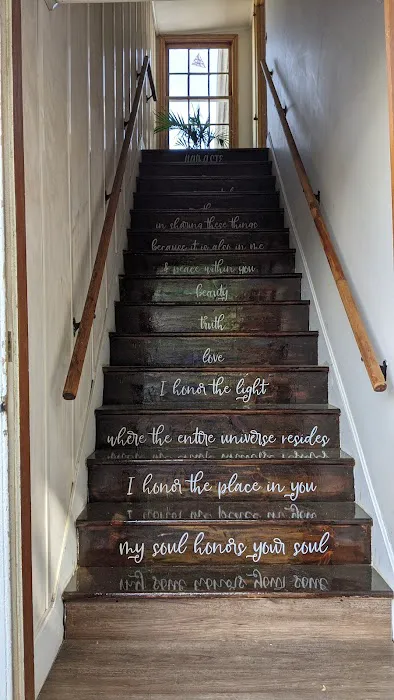 my soul honors your soul
I honor the place in you
where the entire universe resides
I honor the light
love
truth
beauty
& peace within you
because it is also in me
in sharing these things